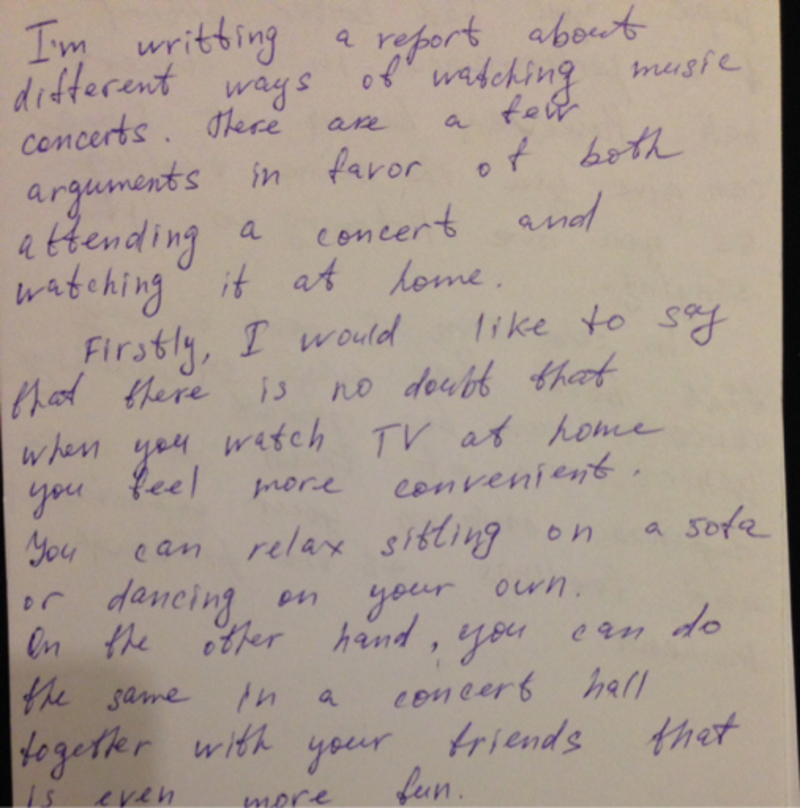 I'm writting a report about
different ways of watching music
concerts. There are a few
arguments in favor of both
attending a concert and
watching it at home.
Firstly, I would like to say
that there is no doubt that
when you watch TV at home
you feel more convenient.
You can relax sitting on a sofa
or dancing on your own.
On the other hand, you can do
the same in a concert hall
together with your friends that
is even more fun.